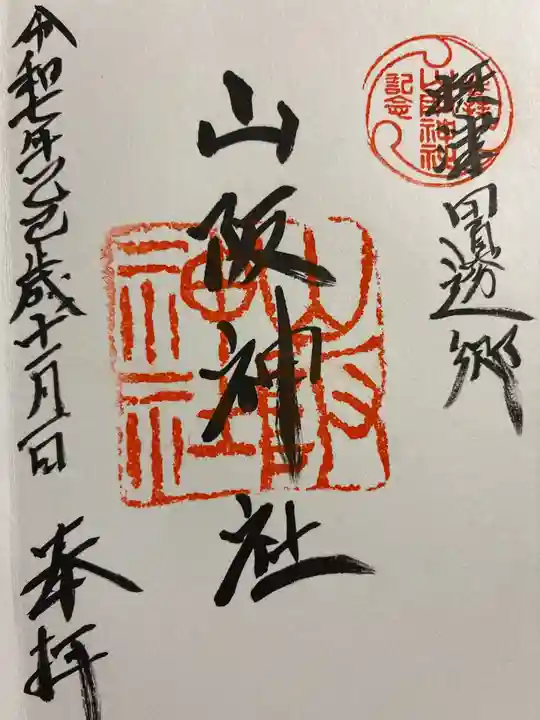 摂津
田邊郷
山阪神社
記念
山阪神社
令和七年乙巳歳十一月一日
奉拝